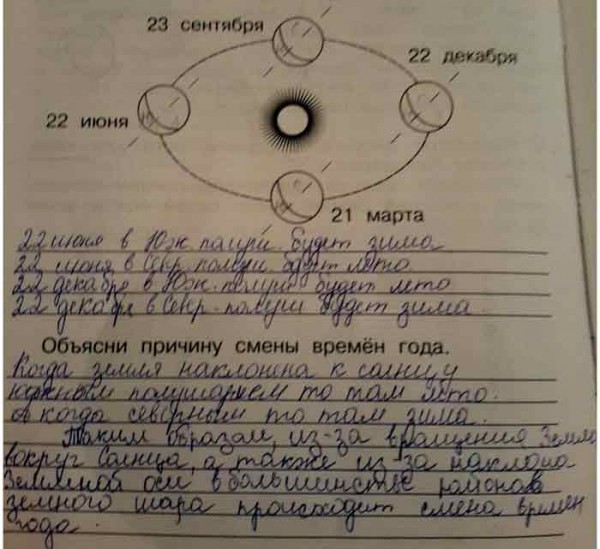 23 сентября
22 декабря
22 июня
21 марта
22 июня в Юж. полуш. будет зима
22 июня в Севр. полуш. будет лето.
22 декабря в Юж. полуш. будет лето
22 декабря в Севр. полуш. будет зима.
Объясни причину смены времён года.
Когда земля наклонена к солнцу
южным полушарием то там лето.
а когда северным то там зима.
Таким образом, из-за вращения Земли
вокруг Солнца, а также из-за наклона
Земной оси в большинстве районов
земного шара происходит смена времен
года.